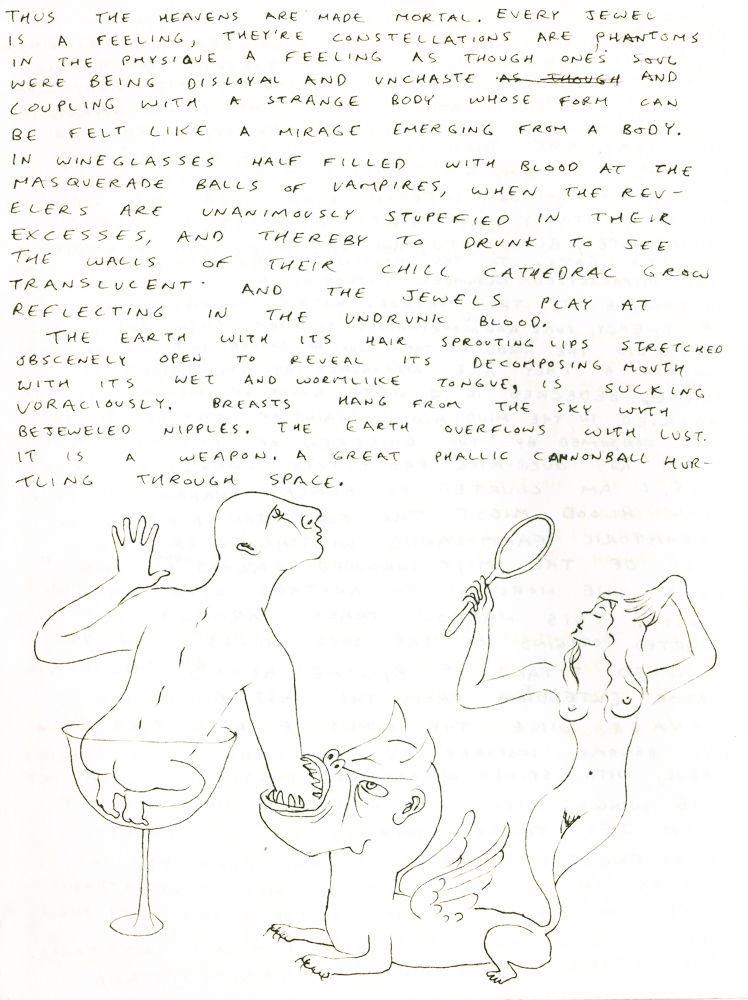 THUS THE HEAVENS ARE MADE MORTAL. EVERY JEWEL
IS A FEELING, THEY'RE CONSTELLATIONS ARE PHANTOMS
IN THE PHYSIQUE A FEELING AS THOUGH ONE'S SOUL
WERE BEING DISLOYAL AND UNCHASTE AS THOUGH AND
COUPLING WITH A STRANGE BODY WHOSE FORM CAN
BE FELT LIKE A MIRAGE EMERGING FROM A BODY.
IN WINEGLASSES HALF FILLED WITH BLOOD AT THE
MASQUERADE BALLS OF VAMPIRES, WHEN THE REV-
ELERS ARE UNANIMOUSLY STUPEFIED IN THEIR
EXCESSES, AND THEREBY TO DRUNK TO SEE
THE WALLS OF THEIR CHILL CATHEDRAL GROW
TRANSLUCENT. AND THE JEWELS PLAY AT
REFLECTING IN THE UNDRUNK BLOOD.
THE EARTH WITH ITS HAIR SPROUTING LIPS STRETCHED
OBSCENELY OPEN TO REVEAL ITS DECOMPOSING MOUTH
WITH ITS WET AND WORMLIKE TONGUE, IS SUCKING
VORACIOUSLY. BREASTS HANG FROM THE SKY WITH
BEJEWELED NIPPLES. THE EARTH OVERFLOWS WITH LUST.
IT IS A WEAPON. A GREAT PHALLIC CANNONBALL HUR-
TLING THROUGH SPACE.